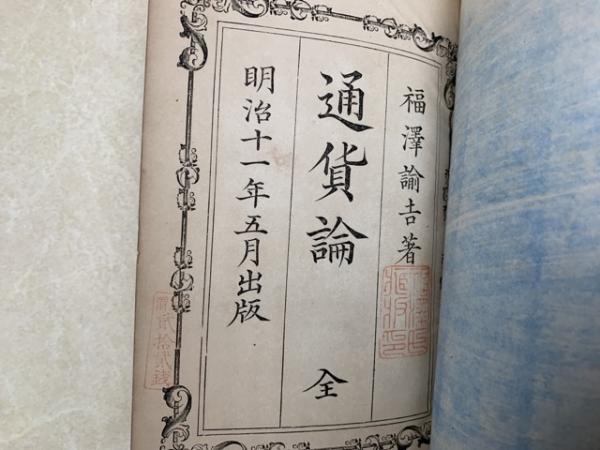 福澤諭吉著
通貨論
全
明治十一年五月出版